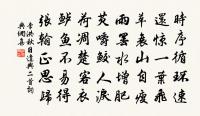 時序循環速
還驚一葉飛
兼山自瘦
雨罷水增肥
芡鮫人淚
荷凋楚客衣
鱸魚不易得
張翰正思歸
李洪秋日遣興二首詞
典網集